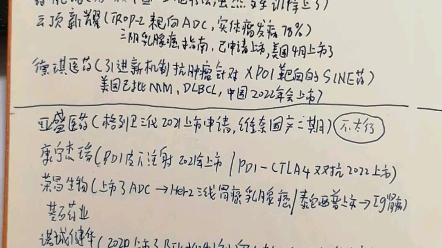 云顶新耀(TROP-2靶向ADC,实体瘤发病78%)
三阴乳腺癌指南,已申请上市,美国4月上市了
德琪医药(引进新机制抗肿瘤针对XPO1靶向的SINE药)
美国已批MM,DLBCL,中国2022年会上市)
亚盛医药(格列卫三代2021上市申请,维奈国产二期)不太行
康宁杰瑞(PD1皮下注射2021年上市/PD1-CTLA4双抗2022上市)
荣昌生物(上市了ADC→Her2三线胃癌乳腺癌/泰它西普上市→Ig肾病)
基石药业
诺诚健华(2020上市了BTK